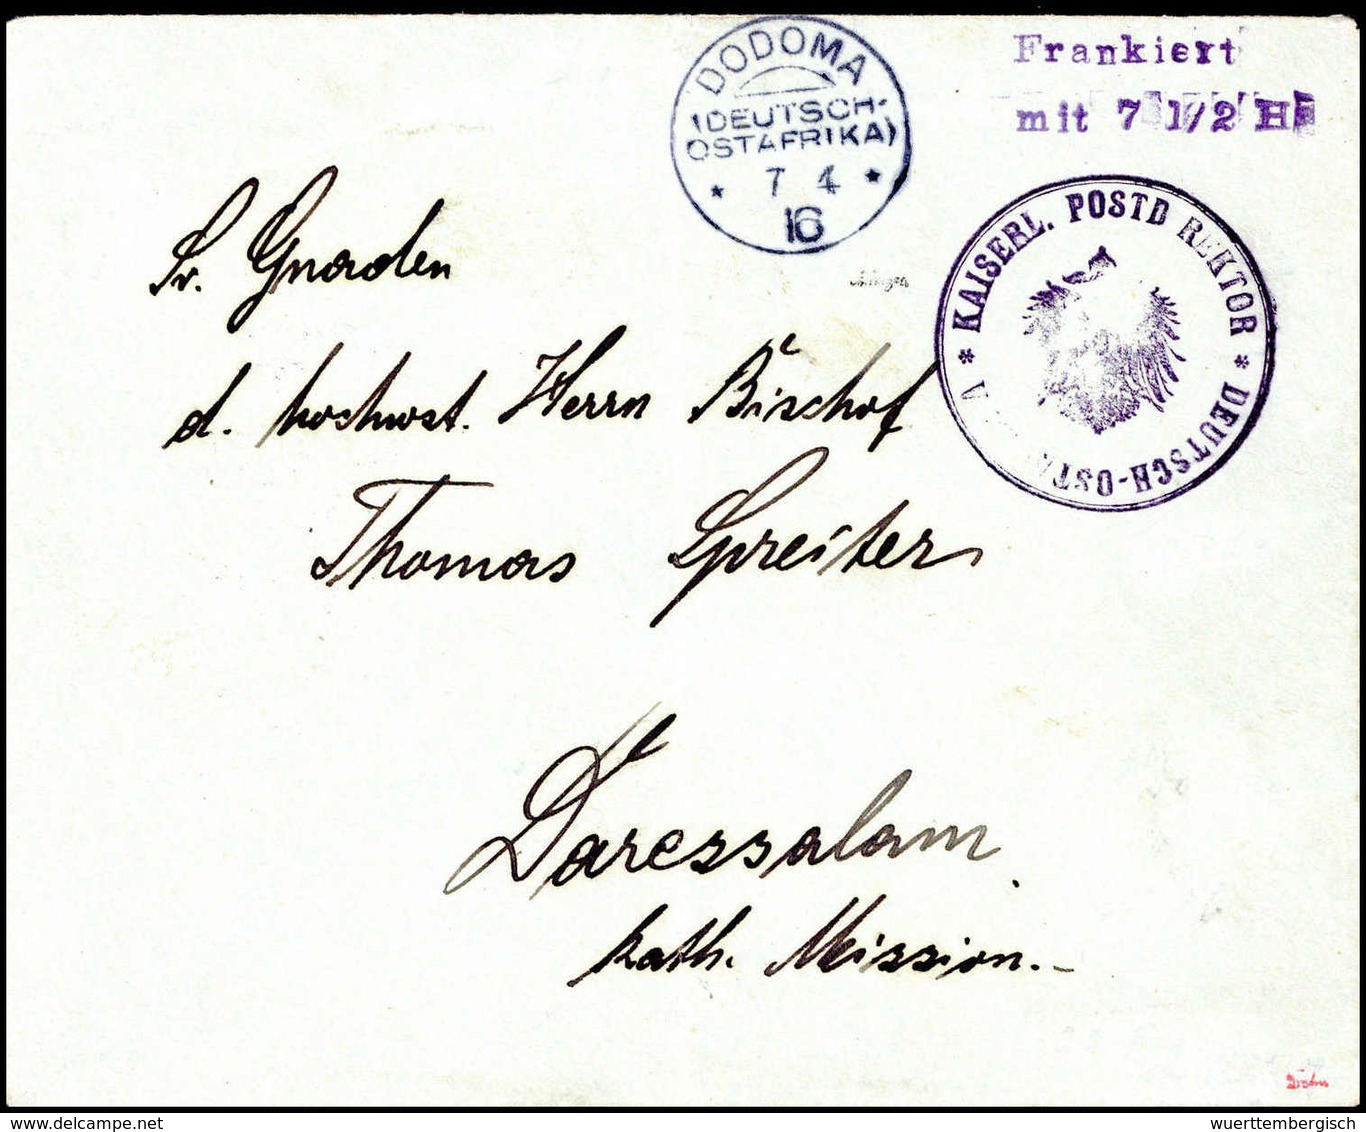 DODOMA
(DEUTSCH-
OSTAFRIKA)
* 7 4 *
16
Frankiert
mit 7 1/2 H
* KAISERL. POSTD REKTOR * DEUTSCH-OSTA A
Sr. Gnaden
d. hochwst. Herrn Bischof
Thomas Spreiter
Daressalam.
kath. Mission.-
wuerttembergisch